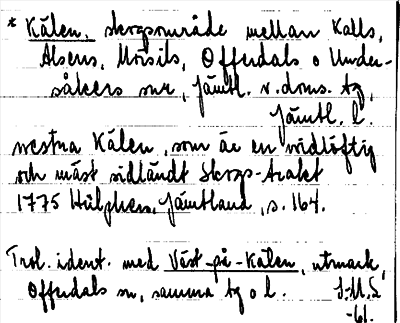 * Kälen, skogsområde mellan Kalls,
Alsens, Mörsils, Offerdals o Under-
såkers snr, Jämtl. v. doms. tg,
Jämtl. l.
westra Kälen, som är en widlöftig
och mäst sidländt Skogs-trakt
1775 Hülphers, Jämtland, s. 164.
Trol. ident. med Väst-på-Kälen, utmark,
Offerdals sn, samma tg o l. J.M.S
-61.